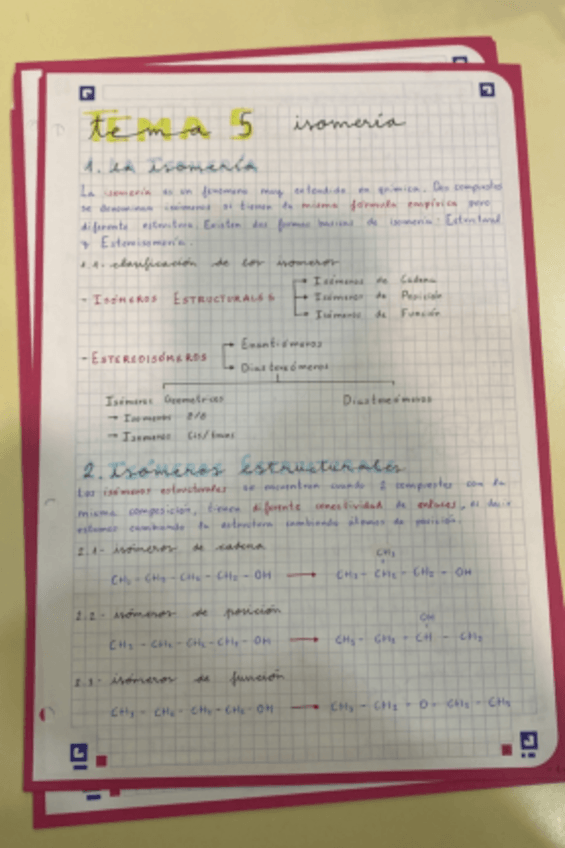 tema 5 isomería
1. La Isomería
La isomería es un fenómeno muy extendido en química. Dos compuestos
se denominan isómeros si tienen la misma fórmula empírica pero
diferente estructura. Existen dos formas básicas de isomería: Estructural
y Estereoisomería.
1.1- clasificación de los isómeros
- ISÓMEROS ESTRUCTURALES → Isómeros de Cadena
→ Isómeros de Posición
→ Isómeros de Función
- ESTEREOISÓMEROS → Enantiómeros
→ Diastereómeros
Isómeros Geométricos Diastereómeros
→ Isómeros
→ Isómeros Cis/trans
2. Isómeros estructurales
Los isómeros estructurales se encuentran cuando 2 compuestos con la
misma composición, tienen diferente conectividad de enlaces, es decir
estamos cambiando la estructura cambiando átomos de posición.
2.1- isómeros de cadena
CH3
CH3 - CH2 - CH2 - CH2 - OH → CH3 - CH2 - CH2 - OH
2.2- isómeros de posición
OH
CH3 - CH2 - CH2 - CH2 - OH → CH3 - CH2 - CH - CH3
2.3- isómeros de función
CH3 - CH2 - CH2 - CH2 - OH → CH3 - CH2 - O - CH2 - CH3